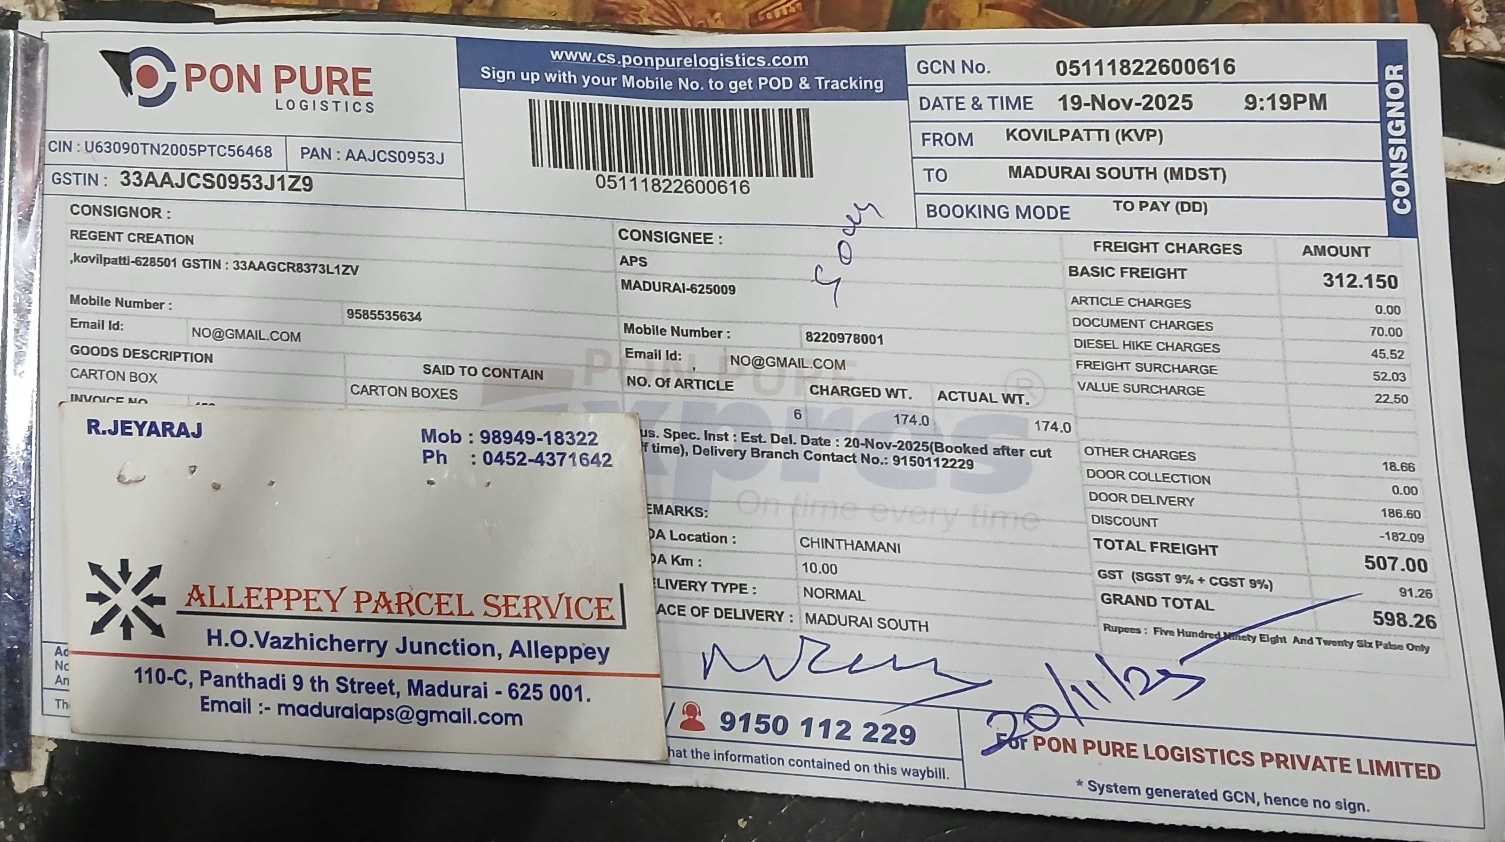 PON PURE
LOGISTICS
CIN : U63090TN2005PTC56468
PAN : AAJCS0953J
GSTIN : 33AAJCS0953J1Z9
www.cs.ponpurelogistics.com
Sign up with your Mobile No. to get POD & Tracking
05111822600616
GCN No. 05111822600616
DATE & TIME 19-Nov-2025 9:19PM
FROM KOVILPATTI (KVP)
TO MADURAI SOUTH (MDST)
BOOKING MODE TO PAY (DD)
CONSIGNOR
CONSIGNOR :
REGENT CREATION
,kovilpatti-628501 GSTIN : 33AAGCR8373L1ZV
Mobile Number : 9585535634
Email Id: NO@GMAIL.COM
GOODS DESCRIPTION SAID TO CONTAIN
CARTON BOX CARTON BOXES
INVOICE NO
CONSIGNEE :
APS
MADURAI-625009
Mobile Number : 8220978001
Email Id: NO@GMAIL.COM
NO. Of ARTICLE CHARGED WT. ACTUAL WT.
6 174.0 174.0
us. Spec. Inst : Est. Del. Date : 20-Nov-2025(Booked after cut
f time), Delivery Branch Contact No.: 9150112229
EMARKS:
DA Location : CHINTHAMANI
DA Km : 10.00
ELIVERY TYPE : NORMAL
ACE OF DELIVERY : MADURAI SOUTH
PON PURE
Xpres®
On time every time
FREIGHT CHARGES AMOUNT
BASIC FREIGHT 312.150
ARTICLE CHARGES 0.00
DOCUMENT CHARGES 70.00
DIESEL HIKE CHARGES 45.52
FREIGHT SURCHARGE 52.03
VALUE SURCHARGE 22.50
OTHER CHARGES 18.66
DOOR COLLECTION 0.00
DOOR DELIVERY 186.60
DISCOUNT -182.09
TOTAL FREIGHT 507.00
GST (SGST 9% + CGST 9%) 91.26
GRAND TOTAL 598.26
Rupees : Five Hundred Ninety Eight And Twenty Six Paise Only
20/11/25
9150 112 229
hat the information contained on this waybill.
For PON PURE LOGISTICS PRIVATE LIMITED
* System generated GCN, hence no sign.
R.JEYARAJ
Mob : 98949-18322
Ph : 0452-4371642
ALLEPPEY PARCEL SERVICE
H.O.Vazhicherry Junction, Alleppey
110-C, Panthadi 9 th Street, Madurai - 625 001.
Email :- maduraiaps@gmail.com
Ad
No
An
Th